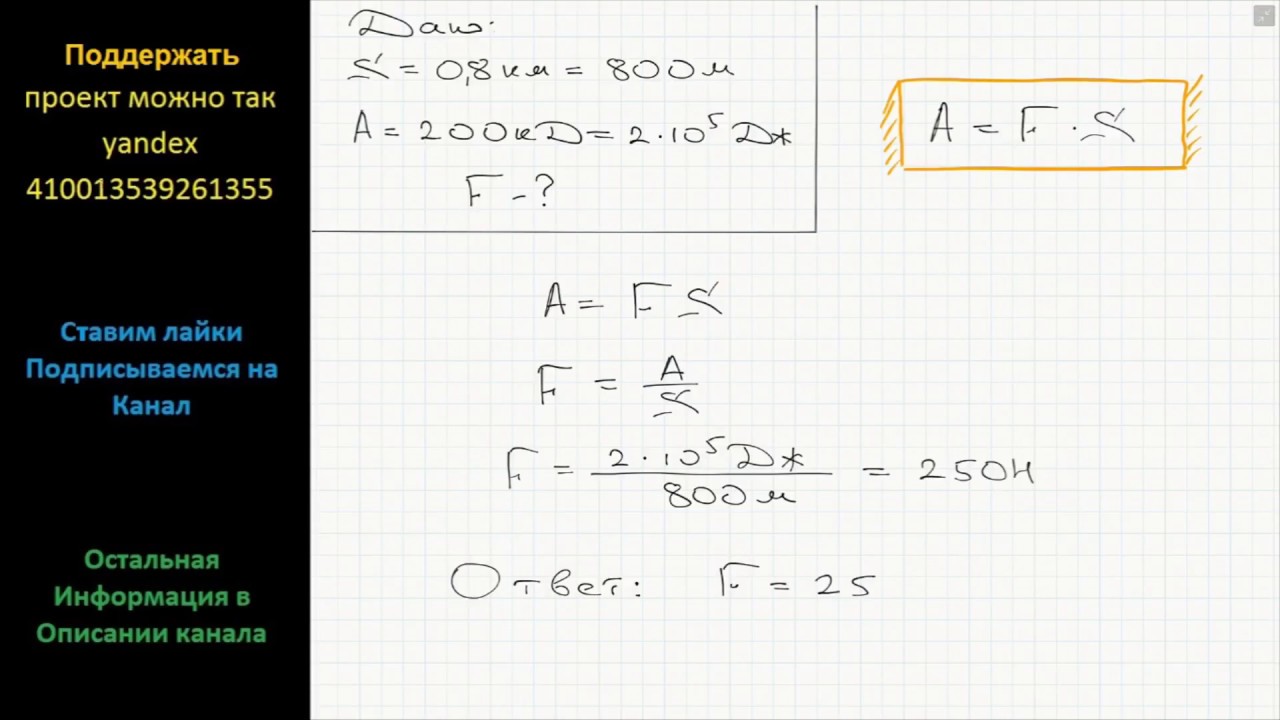 Поддержать
проект можно так
yandex
410013539261355
Ставим лайки
Подписываемся на
Канал
Остальная
Информация в
Описании канала
Дано:
S = 0,8 км = 800 м
A = 200 кД = 2·10⁵ Дж
F - ?
A = F · S
A = F S
F = A/S
F = 2·10⁵ Дж / 800 м = 250 Н
Ответ: F = 25